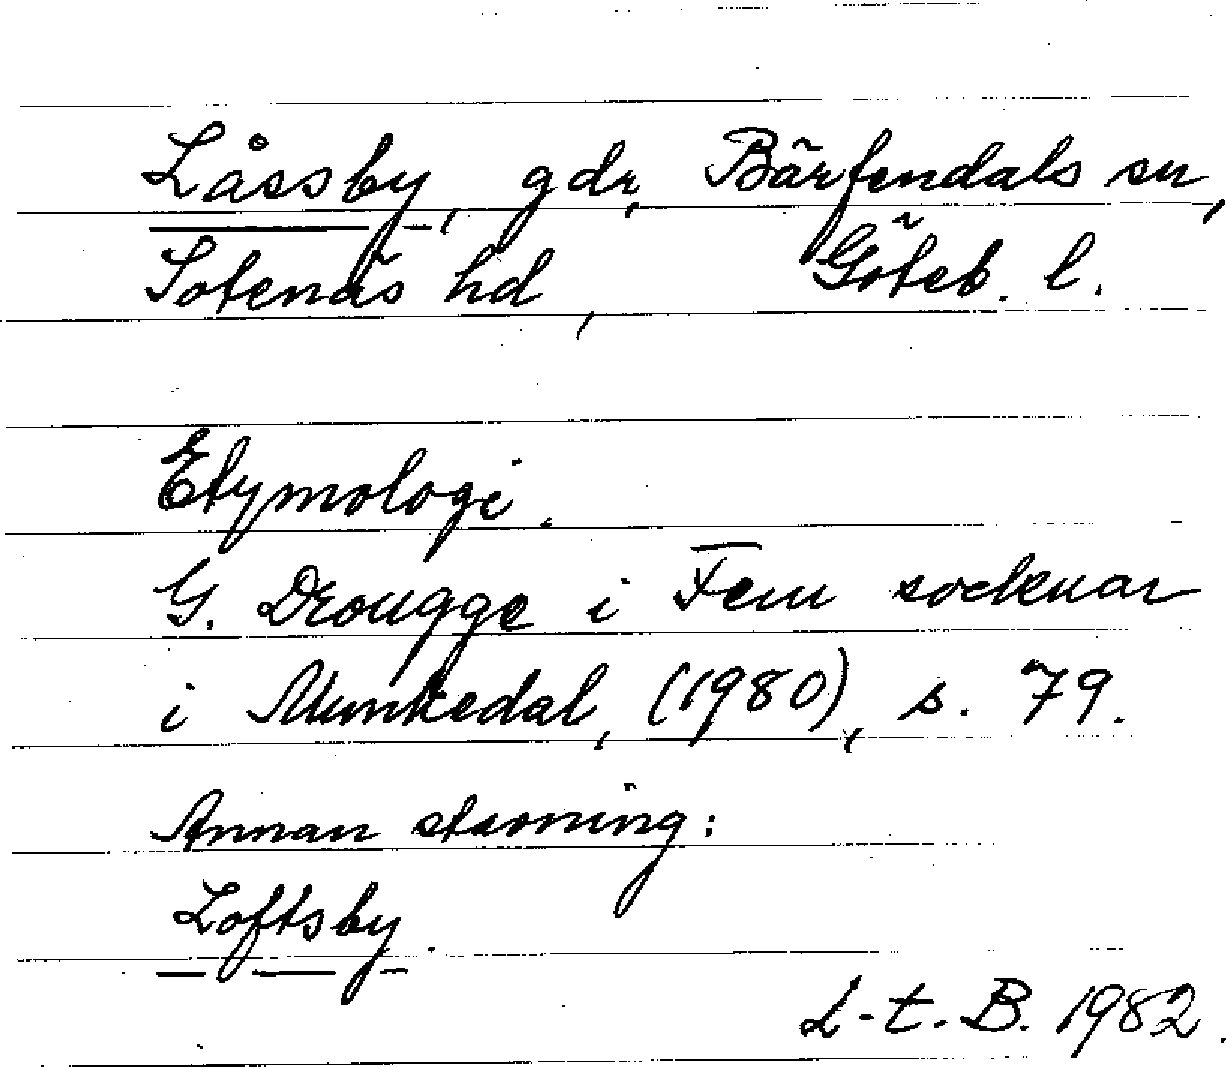 Låssby, gdr, Bärfendals sn,
Sotenäs hd, Göteb. l.
Etymologi.
G. Drougge i Fem socknar
i Munkedal, (1980), s. 79.
Annan stavning:
Loftsby.
L-t. B. 1982.